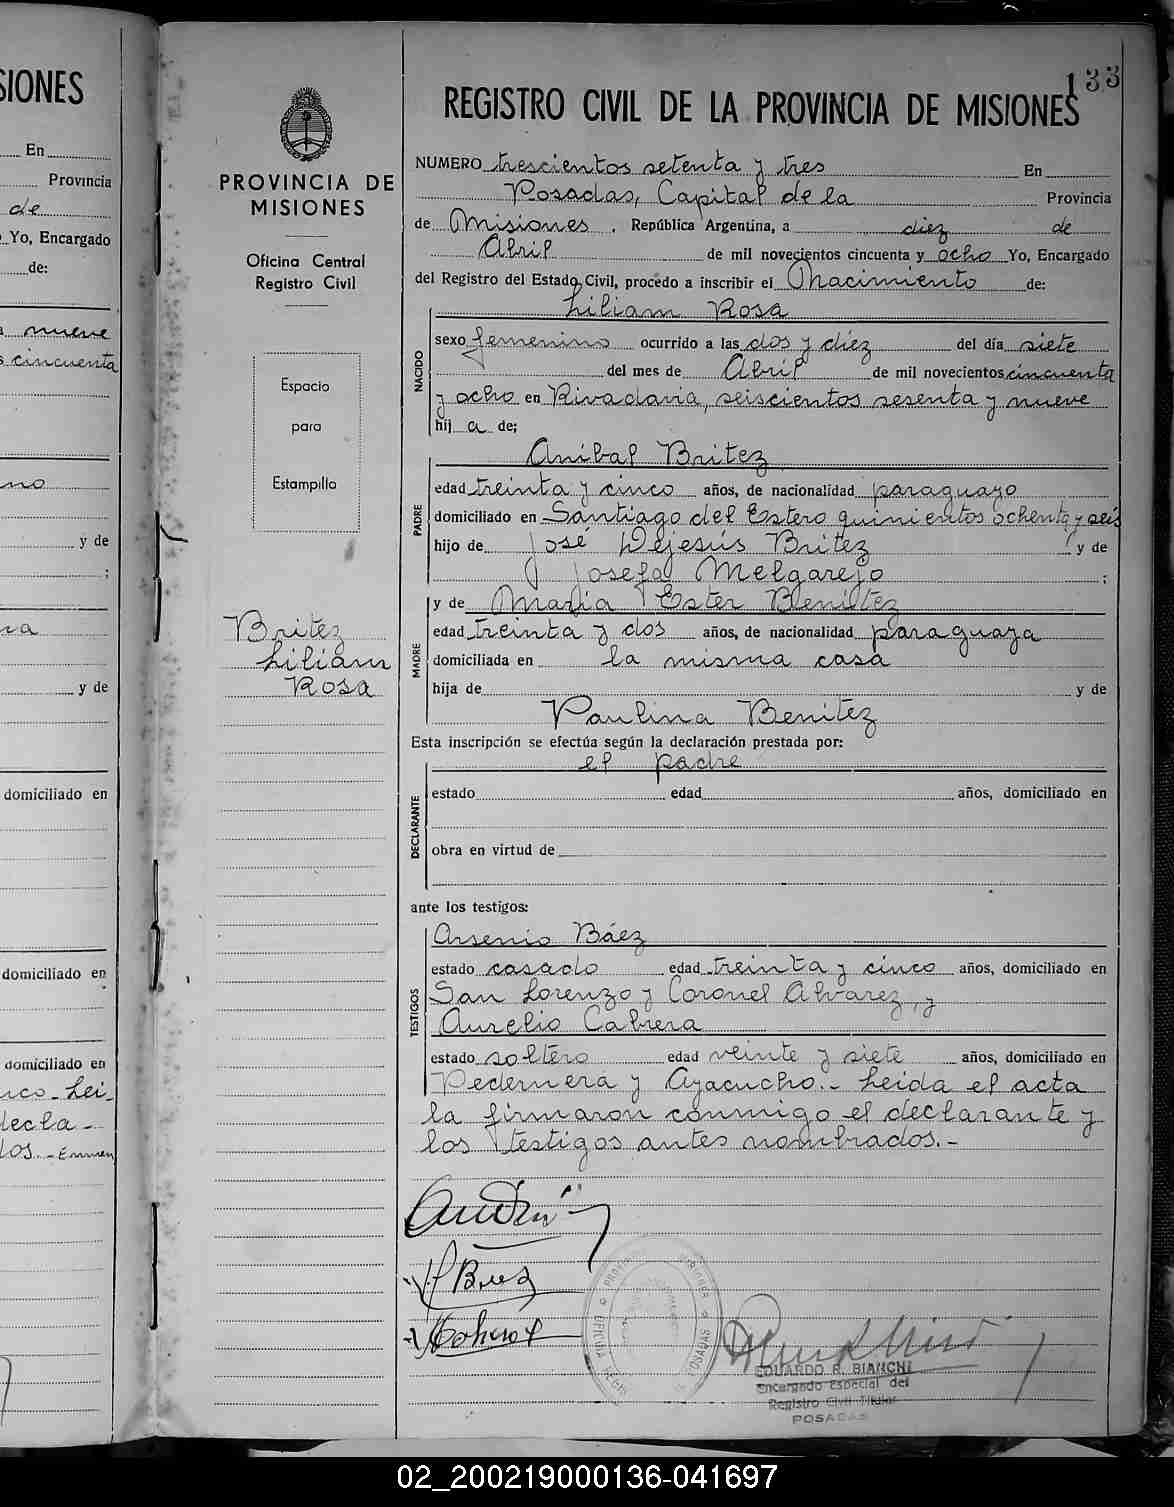 SIONES
En
Provincia
de
Yo, Encargado
de:
nueve
cincuenta
y de
;
y de
domiciliado en
domiciliado en
domiciliado en
133
PROVINCIA DE
MISIONES
Oficina Central
Registro Civil
Espacio
para
Estampilla
Britez
Liliam
Rosa
REGISTRO CIVIL DE LA PROVINCIA DE MISIONES
NUMERO trescientos setenta y tres En
Posadas, Capital de la Provincia
de Misiones . República Argentina, a diez de
Abril de mil novecientos cincuenta y ocho Yo, Encargado
del Registro del Estado Civil, procedo a inscribir el Nacimiento de:
Liliam Rosa
NACIDO
sexo femenino ocurrido a las dos y diez del día siete
del mes de Abril de mil novecientos cincuenta
y ocho en Rivadavia, seiscientos sesenta y nueve
hij a de;
Anibal Britez
PADRE
edad treinta y cinco años, de nacionalidad paraguayo
domiciliado en Santiago del Estero quinientos ochenta y seis
hijo de José Dejesús Britez y de
Josefa Melgarejo ;
y de María Ester Benítez
MADRE
edad treinta y dos años, de nacionalidad paraguaya
domiciliada en la misma casa
hija de y de
Paulina Benítez
Esta inscripción se efectúa según la declaración prestada por:
el padre
DECLARANTE
estado edad años, domiciliado en
obra en virtud de
ante los testigos:
Arsenio Báez
TESTIGOS
estado casado edad treinta y cinco años, domiciliado en
San Lorenzo y Coronel Alvarez, y
Aurelio Cabrera
estado soltero edad veinte y siete años, domiciliado en
Pedernera y Ayacucho.- Leida el acta
la firmaron conmigo el declarante y
los testigos antes nombrados.-
EDUARDO R. BIANCHI
Encargado Especial del
Registro Civil Titular
POSADAS
02_200219000136-041697